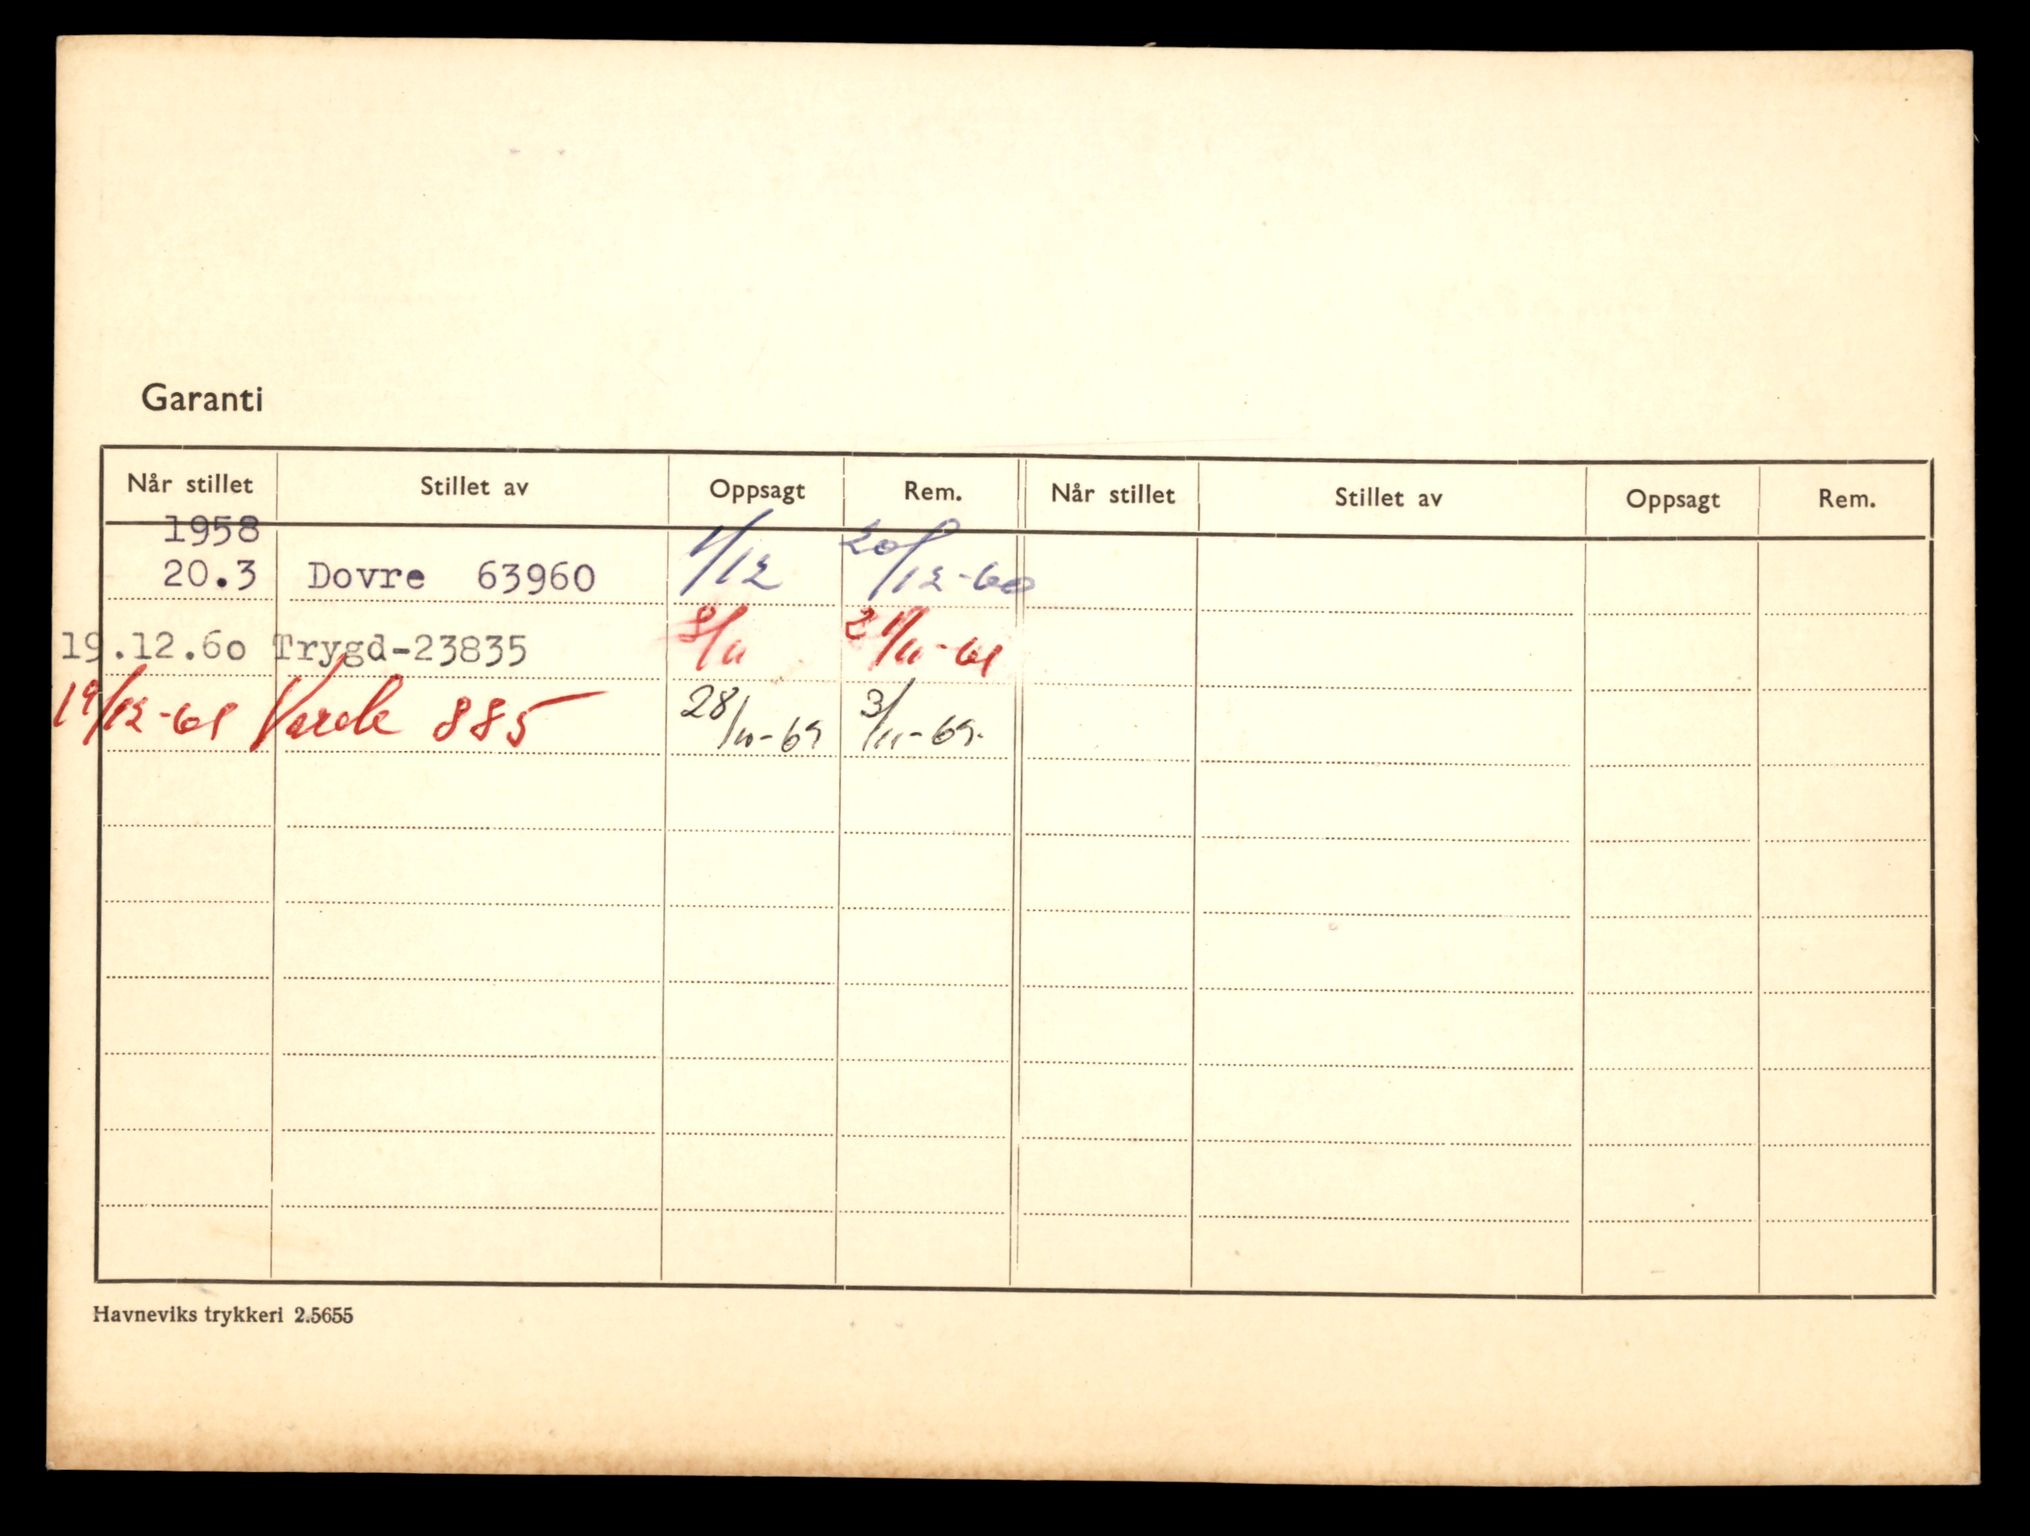 Garanti
Når stillet Stillet av Oppsagt Rem. Når stillet Stillet av Oppsagt Rem.
1958
20.3 Dovre 63960 1/12 20/12-60
19.12.60 Trygd-23835 9/11 21/11-61
19/12-61 Varde 885 28/10-69 3/11-69.
Havneviks trykkeri 2.5655